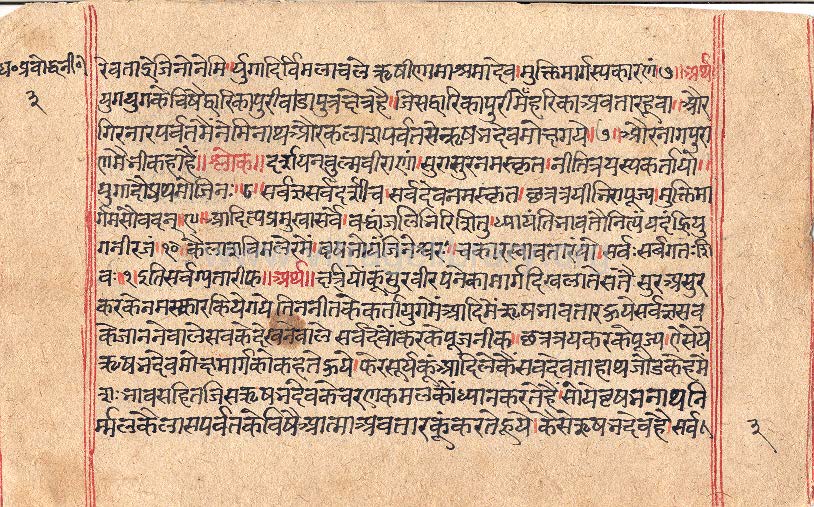 ध॰प्रबोधनी॰
३
रेवताद्रोजिनोनेमि।र्युगादिर्विमलाचले ऋषीणामाश्रमादेव।मुक्तिमार्गस्यकारणं ७॥अर्थ
युगयुगकेविषैद्वारिकापुरीवाडापुन्नक्षेत्रहै।जिसद्वारिकापुरीमैंहरिकाअवतारहूवा।और
गिरनारपर्वतमैंनेमिनाथ।औरकैलाशपर्वतसेऋषभदेवमोक्षगये।७।औरनागपुरा
णमैभीकहाहै॥श्लोक॥दर्शयनवर्त्मवीराणां।सुरासुरनमस्कृत।नीतित्रयस्यकर्तायो।
युगादौप्रथमोजिनः।८।सर्वज्ञसर्वदर्शीच सर्वदेवनमस्कृत।छत्रत्रयीभिरापूज्य।मुक्तिमा
र्गमसौवदन्।९।आदित्यप्रमुखासर्वे।बद्धांजलिभिरिशितु।ध्यायंतिभावतोनित्यं।यदंघ्रियु
गनीरजं।१०।कैलाशविमलेरमे।वृषभोयंजिनेश्वर।चकारस्वावतारंयो।सर्वःसर्वगतःशि
वः।१।इतिसर्वग्यतारीफ॥अर्थ॥क्षत्रियोकूंसूरवीरपनेकामार्गदिखलातेसंते सुरअसुर
करकेनमस्कारकियेगये।तीननीतकेकर्तायुगमेंआदिमेंऋषभावतारऊयेसर्वज्ञसव
केजाननेवालेसबकेदेखनेवाले सर्वदेवोंकरकेपूजनीक।छत्रत्रयकरकेपूज्य।ऐसेये
ऋषभदेवमोक्षमार्गकोकहतेऊये।फेरसूर्यकूंआदिलेकैंसबदेवताहाथजोडकेहमे
शःभावसहितजिसऋषभदेवकेचरणकमलकोध्यानकरतेहैं।सोयेऋषभनाथनि
र्म्मलकैलासपर्वतकेविषैआत्माअवतारकूंकरतेहुये।कैसेऋषभदेवहै।सर्व।
३